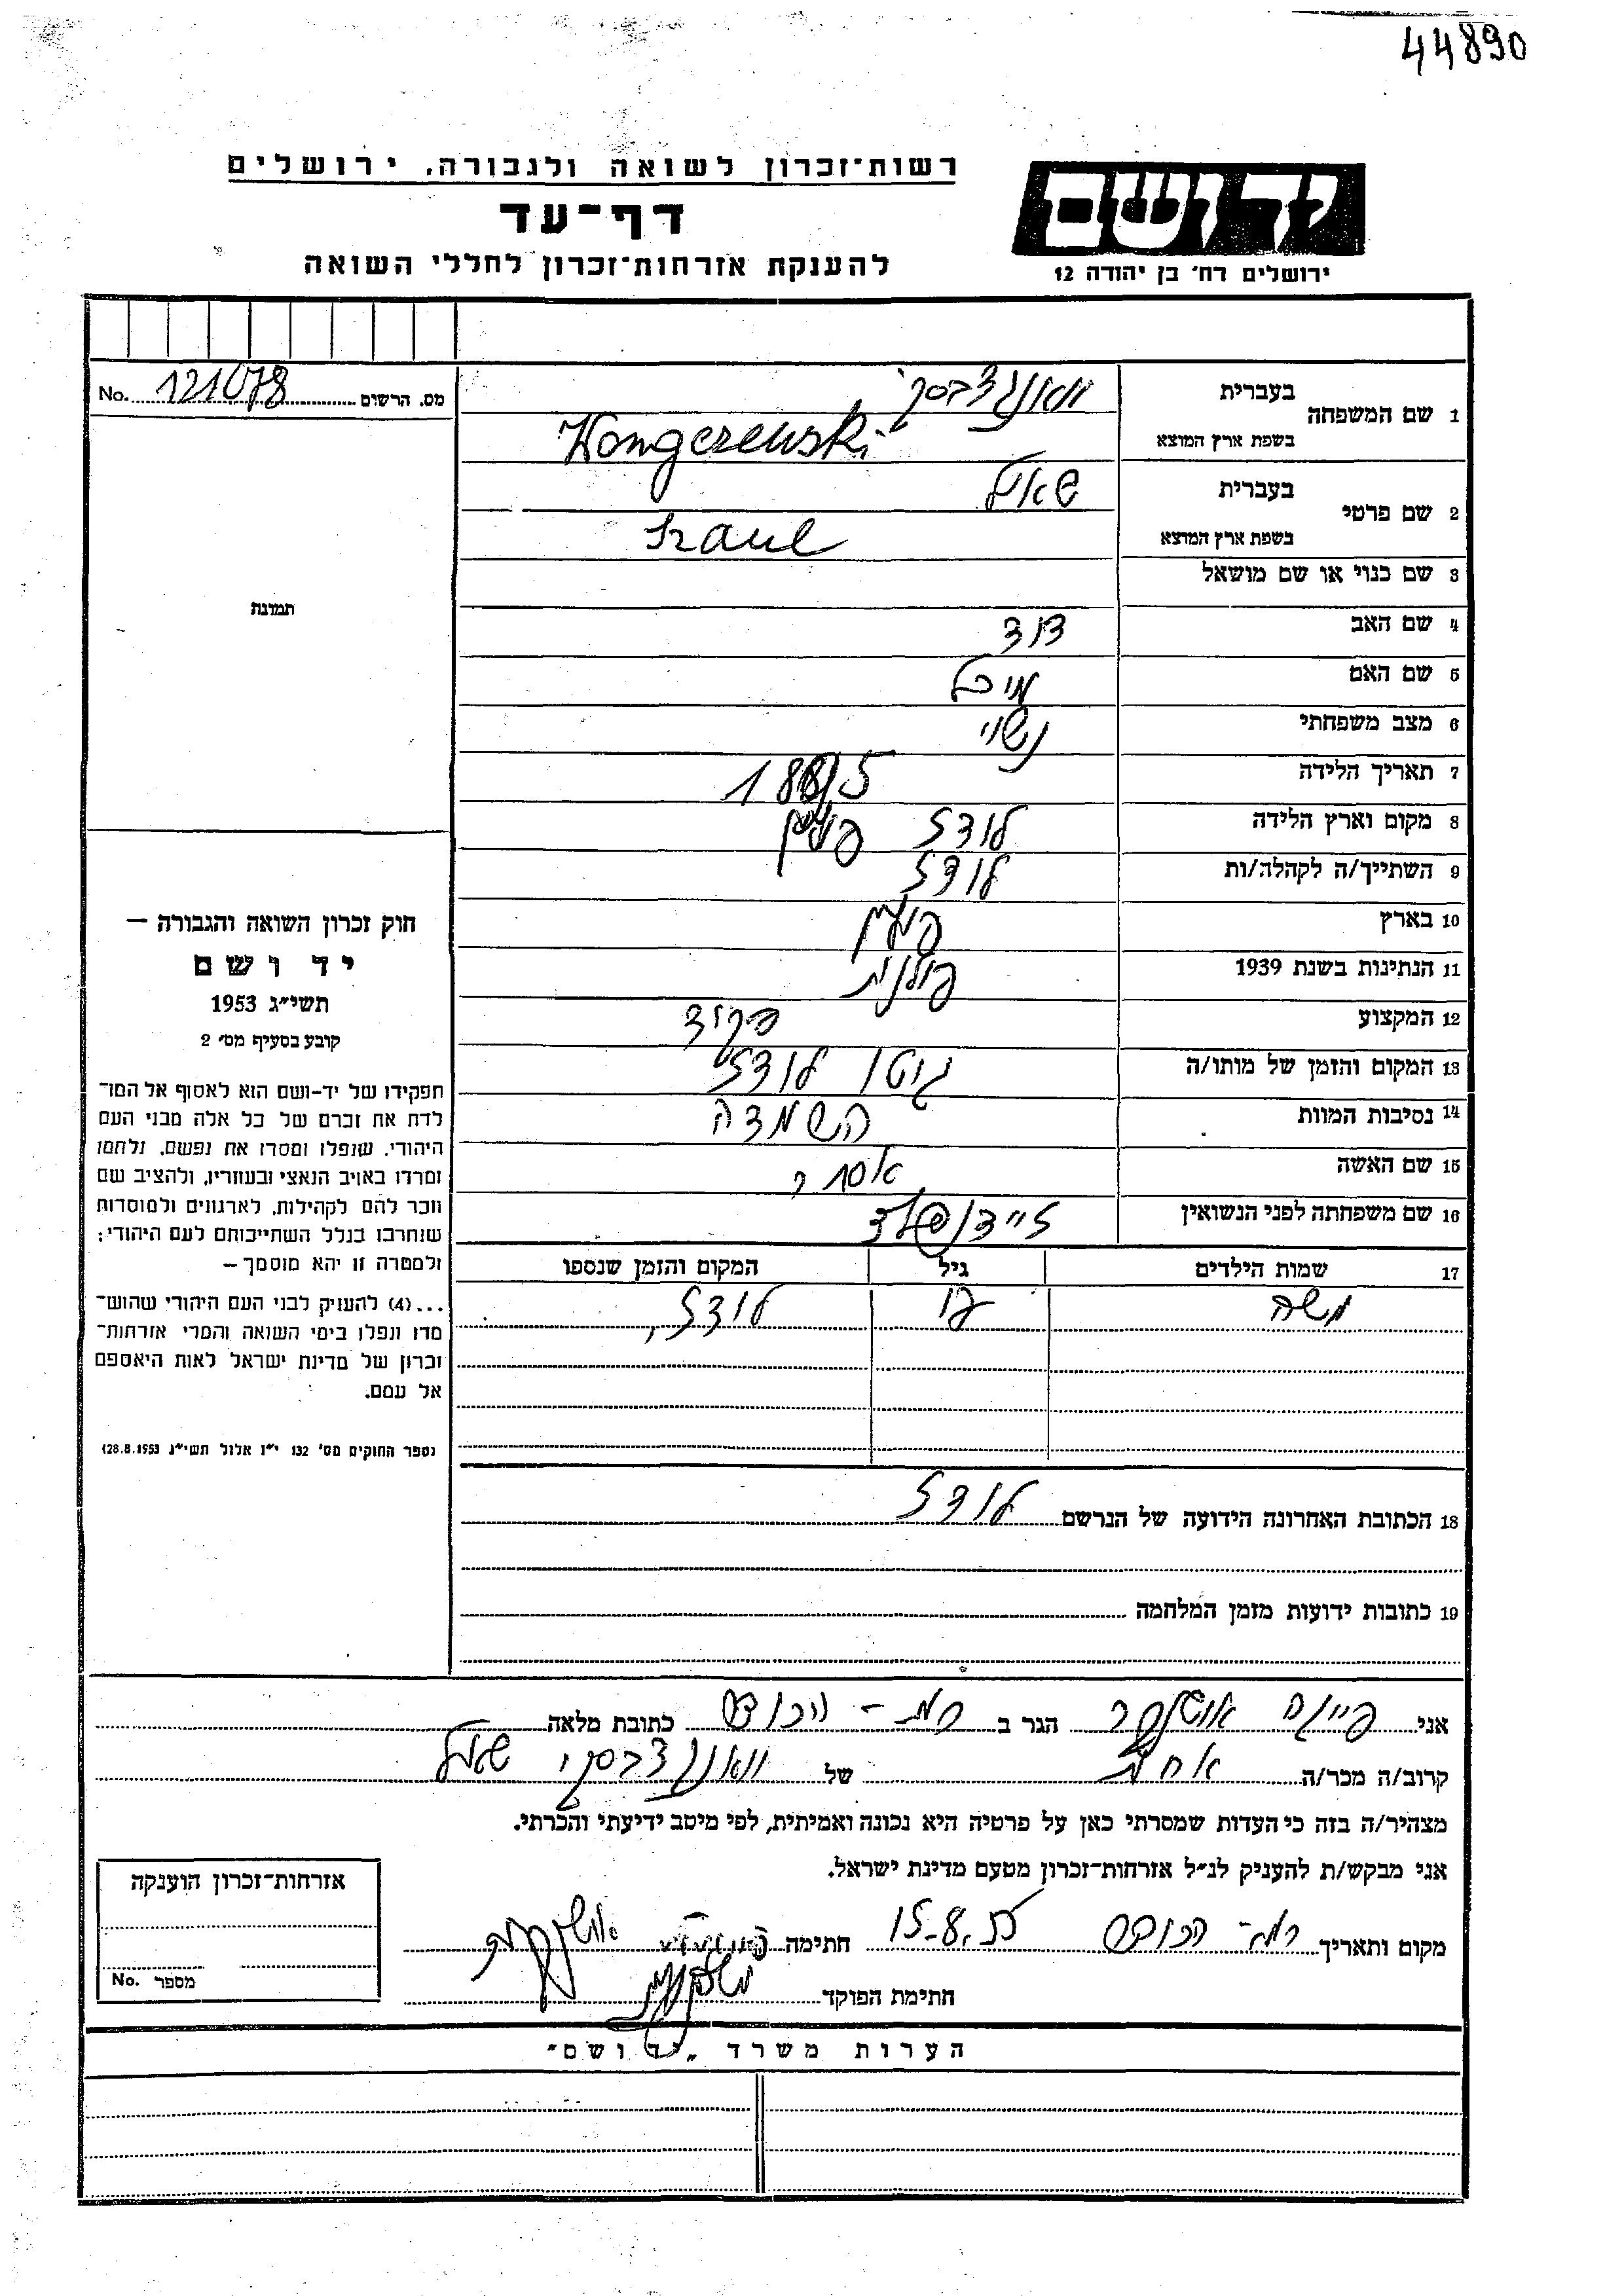 44890
רשות־זכרון לשואה ולגבורה, ירושלים
דף־עד
להענקת אזרחות־זכרון לחללי השואה
יד ושם
ירושלים רח' בן יהודה 12
מס. הרשום 121078 No.
תמונת
חוק זכרון השואה והגבורה –
יד ושם
תשי״ג 1953
קובע בסעיף מס׳ 2
תפקידו של יד-ושם הוא לאסוף אל המו־
לדת את זכרם של כל אלה מבני העם
היהודי, שנפלו ומסרו את נפשם, נלחמו
ומרדו באויב הנאצי ובעוזריו, ולהציב שם
וזכר להם לקהילות, לארגונים ולמוסדות
שנחרבו בגלל השתייכותם לעם היהודי;
ולמטרה זו יהא מוסמך –
...(4) להעניק לבני העם היהודי שהוש־
מדו ונפלו בימי השואה והמרי אזרחות־
זכרון של מדינת ישראל לאות היאספם
אל עמם.
(ספר החוקים מס׳ 132 י״ז אלול תשי״ג 28.8.1953)
1 שם המשפחה בעברית
בשפת ארץ המוצא
2 שם פרטי בעברית שאול
בשפת ארץ המוצא Szaul
3 שם כנוי או שם מושאל
4 שם האב דוד
5 שם האם מיכל
6 מצב משפחתי נשוי
7 תאריך הלידה
8 מקום וארץ הלידה לודז פולין
9 השתייך/ה לקהלה/ות לודז
10 בארץ פולין
11 הנתינות בשנת 1939 פולנית
12 המקצוע פקיד
13 המקום והזמן של מותו/ה גיטו לודז
14 נסיבות המוות השמדה
15 שם האשה אסתר
16 שם משפחתה לפני הנשואין זיידנפלד
17 שמות הילדים גיל המקום והזמן שנספו
משה לודז,
18 הכתובת האחרונה הידועה של הנרשם לודז
19 כתובות ידועות מזמן המלחמה
אני פייגה הגר ב רמת - הכובש כתובת מלאה
קרוב/ה מכר/ה אחות של שאול
מצהיר/ה בזה כי העדות שמסרתי כאן על פרטיה היא נכונה ואמיתית, לפי מיטב ידיעתי והכרתי.
אני מבקש/ת להעניק לנ״ל אזרחות־זכרון מטעם מדינת ישראל.
מקום ותאריך רמת - הכובש 15.8.55 חתימה
חתימת הפוקד
אזרחות־זכרון הוענקה
מספר No.
הערות משרד „יד ושם״